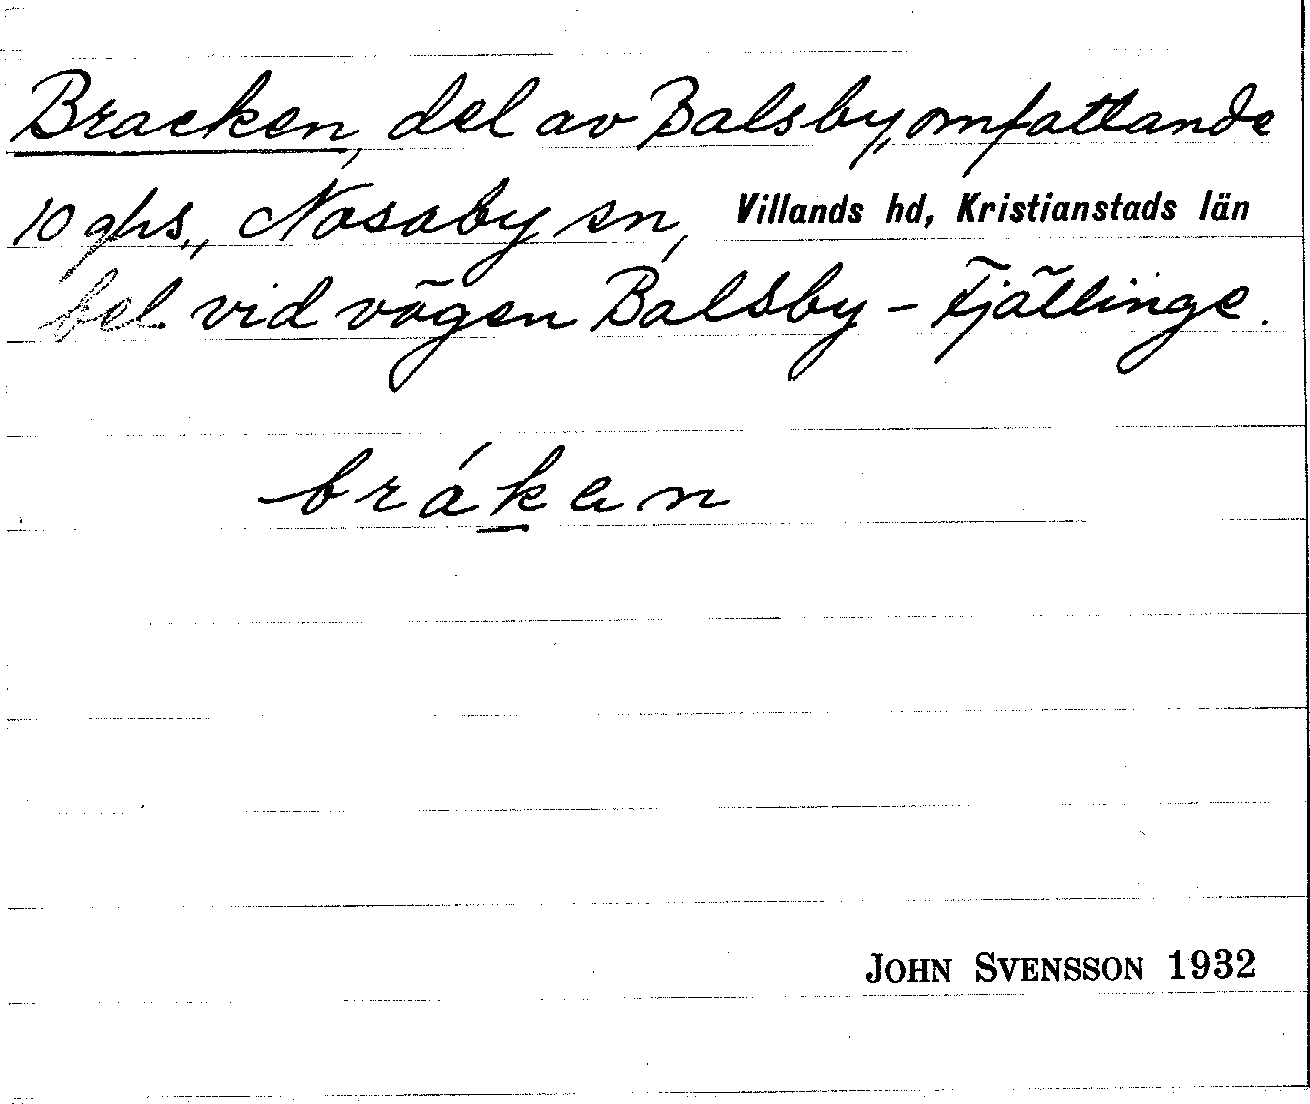 Bracken, del av Balsby, omfattande
10 ghs., Nosaby sn, Villands hd, Kristianstads län
bel. vid vägen Balsby – Fjällinge.
bráken
JOHN SVENSSON 1932